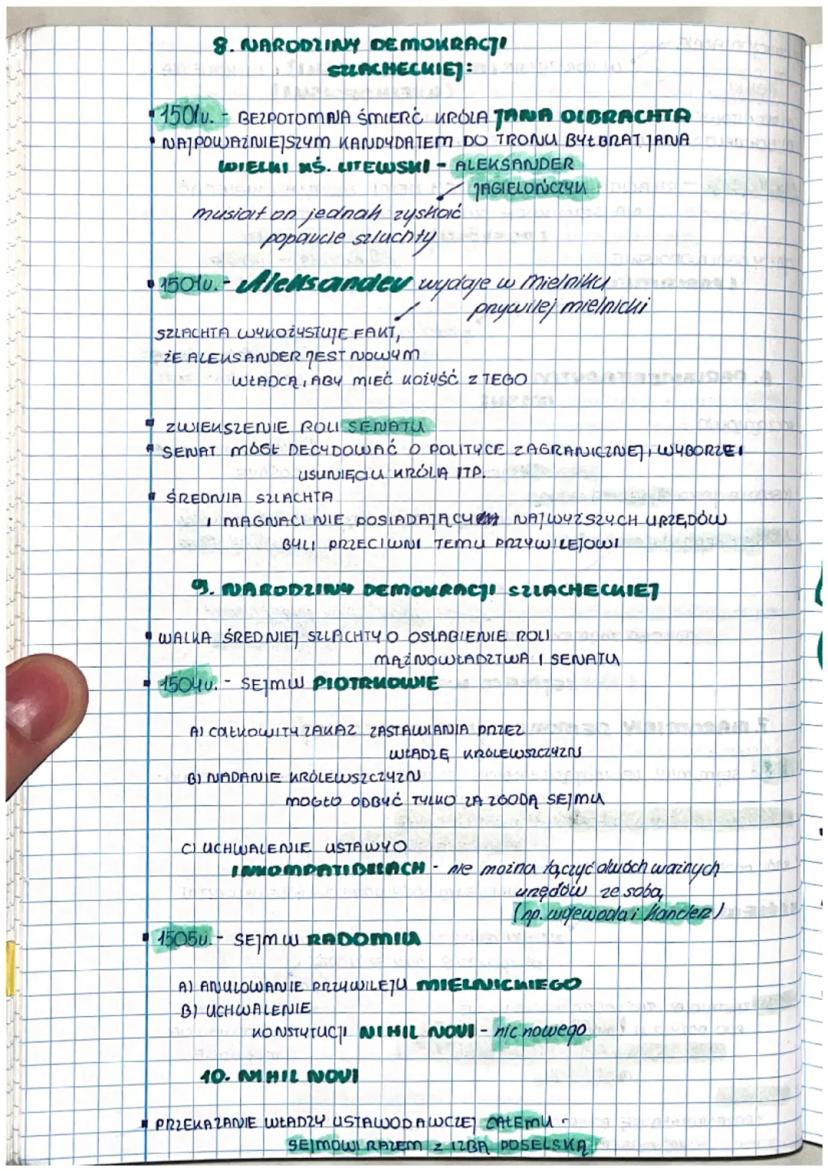 8. NARODZINY DEMOKRACJI
SZLACHECKIEJ:
1501r. - BEZPOTOMNA ŚMIERĆ KRÓLA JANA OLBRACHTA
NAJPOWAŻNIEJSZYM KANDYDATEM DO TRONU BYŁ BRAT JANA
WIELKI KŚ. LITEWSKI - ALEKSANDER
JAGIELOŃCZYK
musiał on jednak zyskać
poparcie szlachty
1501r. - Aleksander wydaje w Mielniku
przywilej mielnicki
SZLACHTA WYKOŻYSTUJE FAKT,
ŻE ALEKSANDER JEST NOWYM
WŁADCĄ, ABY MIEĆ KOŻYŚĆ Z TEGO
ZWIEKSZENIE ROLI SENATU
SENAT MÓGŁ DECYDOWAĆ O POLITYCE ZAGRANICZNEJ, WYBORZE I
USUNIĘCIU KRÓLA ITP.
ŚREDNIA SZLACHTA
I MAGNACI NIE POSIADAJĄCY NAJWYŻSZYCH URZĘDÓW
BYLI PRZECIWNI TEMU PRZYWILEJOWI
9. NARODZINY DEMOKRACJI SZLACHECKIEJ
WALKA ŚREDNIEJ SZLACHTY O OSŁABIENIE ROLI
MAŻNOWŁADZTWA I SENATU
1504r. - SEJM W PIOTRKOWIE
A) CAŁKOWITY ZAKAZ ZASTAWIANIA PRZEZ
WŁADZĘ KRÓLEWSZCZYZN
B) NADANIE KRÓLEWSZCZYZN
MOGŁO ODBYĆ TYLKO ZA ZGODĄ SEJMU
C) UCHWALENIE USTAWY O
INKOMPATIBILACH - nie można łączyć dwóch ważnych
urzędów ze sobą
(np. wojewoda i kanclerz)
1505r. - SEJM W RADOMIU
A) ANULOWANIE PRZYWILEJU MIELNICKIEGO
B) UCHWALENIE
KONSTYTUCJI NIHIL NOVI - nic nowego
10. NIHIL NOVI
PRZEKAZANIE WŁADZY USTAWODAWCZEJ CAŁEMU -
SEJMOWI RAZEM Z IZBĄ POSELSKĄ